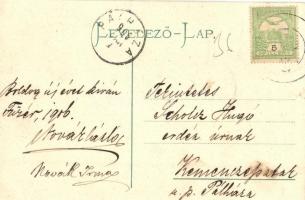 LEVELEZŐ-LAP.
PÁLHÁZA
5
Boldog új évet kíván
Füzér, 1906.
Novák László
Novák Irma
Tekintetes
Scholcz Hugó
erdész úrnak
Kemenczepatak
u. p. Pálháza